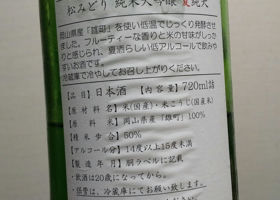 松みどり 純米大吟醸 夏純大
岡山県産「雄町」を使い低温でじっくり発酵させ
ました。フルーティーな香りと米の甘味がしっか
りと感じられ、夏酒らしい低アルコールで飲みや
すいお酒です。
冷蔵庫で冷やしてお召し上がりください。
【品目】日本酒 【内容量】720ml詰
【原材料名】米(国産)・米こうじ(国産米)
【原料米】岡山県産「雄町」100%
【精米歩合】50%
【アルコール分】14度以上15度未満
【製造年月】胴ラベルに記載
・飲酒は20歳になってから。
・保管は、冷蔵庫にてお願い致します。